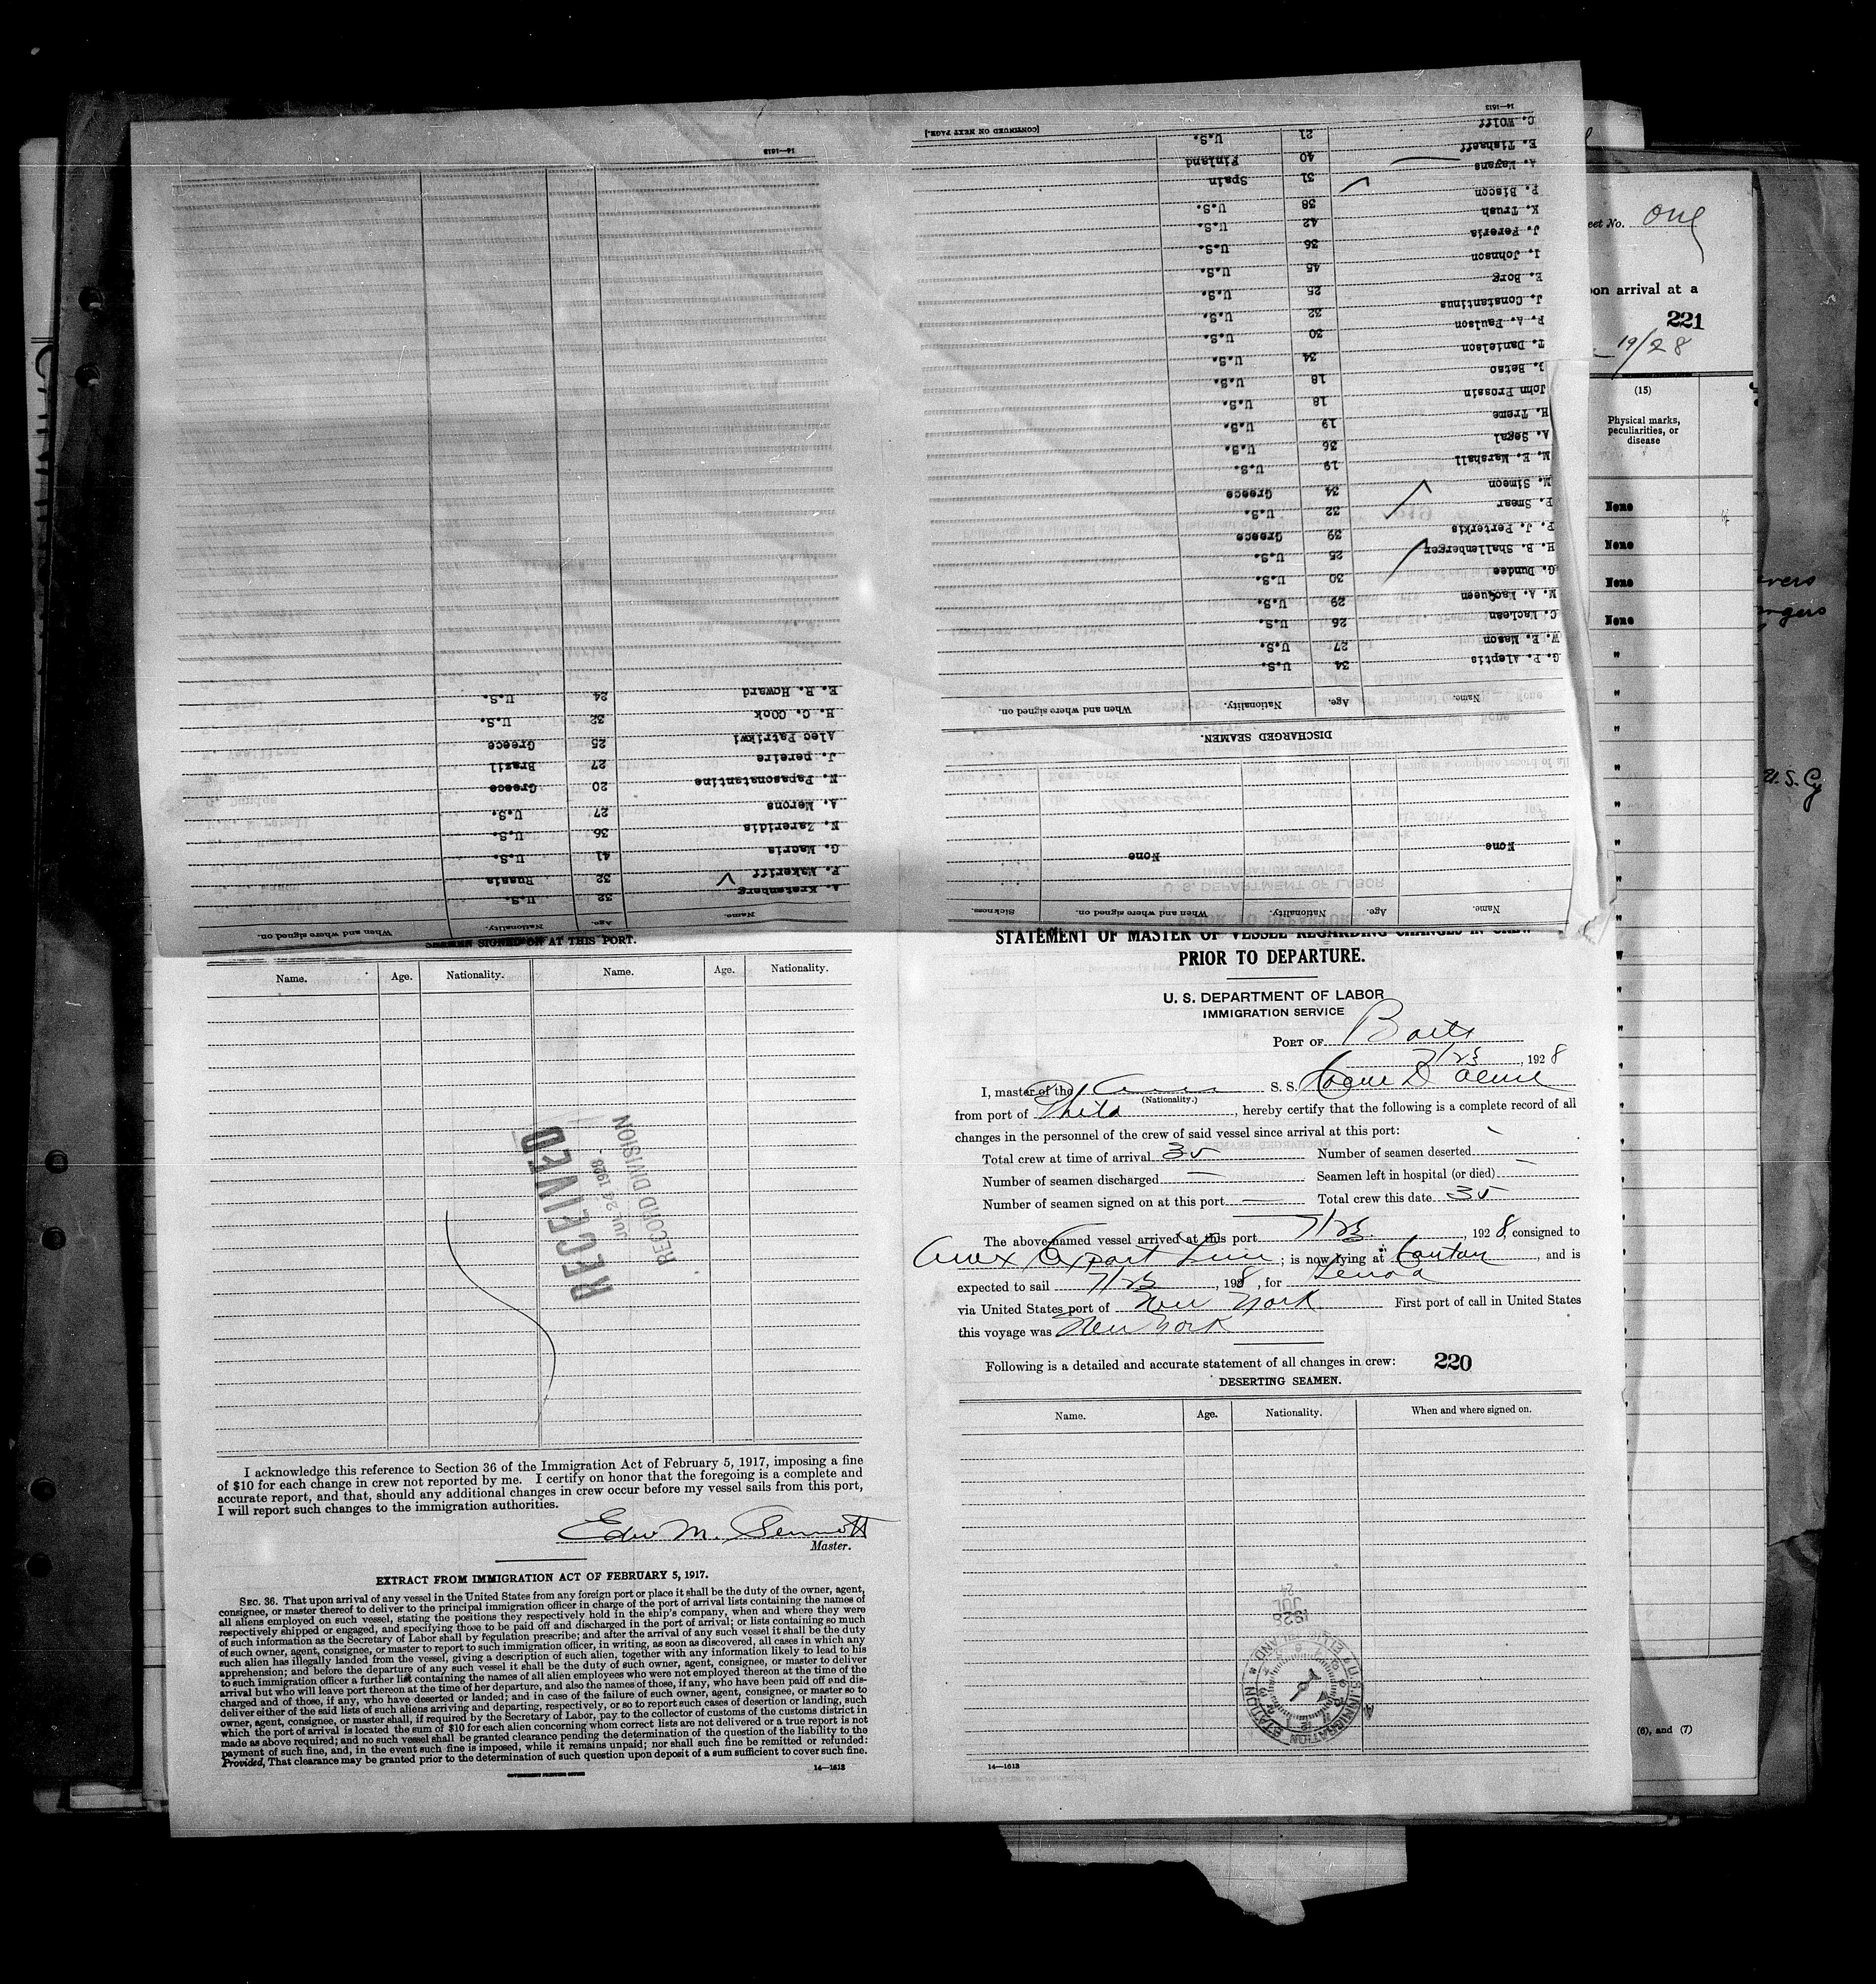 Name. Age. Nationality. When and where signed on. Sickness.
None None
DISCHARGED SEAMEN.
Name. Age. Nationality. When and where signed on.
G. P. Aleptis 34 U.S.
W. E. Mason 27 U.S.
C. MacLean 26 U.S.
M. A. MacQueen 29 U.S.
G. Dundee 30 U.S.
H. B. Shallenberger 25 U.S.
P. J. Perterkis 39 Greece
F. Smear 32 U.S.
N. Simeon 34 Greece
M. E. Marshall 19 U.S.
A. Segal 36 U.S.
H. Treme 19 U.S.
John Prossin 18 U.S.
J. Betso 18 U.S.
T. Danielson 34 U.S.
P. A. Paulson 30 U.S.
J. Constantinus 32 U.S.
E. Borg 25 U.S.
I. Johnson 45 U.S.
J. Pereria 36 U.S.
K. Trush 42 U.S.
P. Biscon 38 U.S.
A. Mayans 31 Spain
E. Tishoff 40 Finland
C. Wolff 21 U.S.
[CONTINUED ON NEXT PAGE.]
14—1613
Name. Age. Nationality. When and where signed on.
A. Kratenberg 32 U.S.
F. Makeriff 32 Russia
G. Macris 41 U.S.
N. Zareridis 36 U.S.
A. Merons 27 U.S.
N. Papasonstantine 20 Greece
J. pereire 27 Brazil
Alec Patrikwi 25 Greece
H. C. COok 32 U.S.
E. R. Howard 24 U.S.
14—1613
eet No. One
on arrival at a
221
19/28
(15)
Physical marks,
peculiarities, or
disease
None
None
None
None
"
U.S. Cy
(6), and (7)
SEAMEN SIGNED ON AT THIS PORT.
Name. Age. Nationality. Name. Age. Nationality.
RECEIVED
JUL 24 1928
RECORD DIVISION
I acknowledge this reference to Section 36 of the Immigration Act of February 5, 1917, imposing a fine
of $10 for each change in crew not reported by me. I certify on honor that the foregoing is a complete and
accurate report, and that, should any additional changes in crew occur before my vessel sails from this port,
I will report such changes to the immigration authorities.
Edw M.
Master.
EXTRACT FROM IMMIGRATION ACT OF FEBRUARY 5, 1917.
SEC. 36. That upon arrival of any vessel in the United States from any foreign port or place it shall be the duty of the owner, agent,
consignee, or master thereof to deliver to the principal immigration officer in charge of the port of arrival lists containing the names of
all aliens employed on such vessel, stating the positions they respectively hold in the ship's company, when and where they were
respectively shipped or engaged, and specifying those to be paid off and discharged in the port of arrival; or lists containing so much
of such information as the Secretary of Labor shall by regulation prescribe; and after the arrival of any such vessel it shall be the duty
of such owner, agent, consignee, or master to report to such immigration officer, in writing, as soon as discovered, all cases in which any
such alien has illegally landed from the vessel, giving a description of such alien, together with any information likely to lead to his
apprehension; and before the departure of any such vessel it shall be the duty of such owner, agent, consignee, or master to deliver
to such immigration officer a further list containing the names of all alien employees who were not employed thereon at the time of the
arrival but who will leave port thereon at the time of her departure, and also the names of those, if any, who have been paid off and dis-
charged and of those, if any, who have deserted or landed; and in case of the failure of such owner, agent, consignee, or master so to
deliver either of the said lists of such aliens arriving and departing, respectively, or so to report such cases of desertion or landing, such
owner, agent, consignee, or master, shall, if required by the Secretary of Labor, pay to the collector of customs of the customs district in
which the port of arrival is located the sum of $10 for each alien concerning whom correct lists are not delivered or a true report is not
made as above required; and no such vessel shall be granted clearance pending the determination of the question of the liability to the
payment of such fine, and, in the event such fine is imposed, while it remains unpaid; nor shall such fine be remitted or refunded:
Provided, That clearance may be granted prior to the determination of such question upon deposit of a sum sufficient to cover such fine.
GOVERNMENT PRINTING OFFICE
14—1613
STATEMENT OF MASTER OF VESSEL REGARDING CHANGES IN CREW
PRIOR TO DEPARTURE.
U. S. DEPARTMENT OF LABOR
IMMIGRATION SERVICE
PORT OF Balto
7/23, 1928
I, master of the Am S. S.
(Nationality.)
from port of Phila, hereby certify that the following is a complete record of all
changes in the personnel of the crew of said vessel since arrival at this port:
Total crew at time of arrival 35 Number of seamen deserted
Number of seamen discharged — Seamen left in hospital (or died) —
Number of seamen signed on at this port — Total crew this date 35
The above-named vessel arrived at this port 7/23, 1928, consigned to
Amex Export Line; is now lying at Canton, and is
expected to sail 7/23, 1928, for Genoa
via United States port of New York First port of call in United States
this voyage was New York
Following is a detailed and accurate statement of all changes in crew: 220
DESERTING SEAMEN.
Name. Age. Nationality. When and where signed on.
1928
JUL
24
U.S. IMMIGRATION STATION ELLIS ISLAND
14—1613